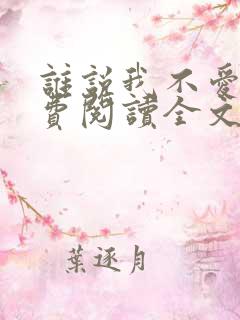 誰說我不愛
費閱讀全文
葉逐月